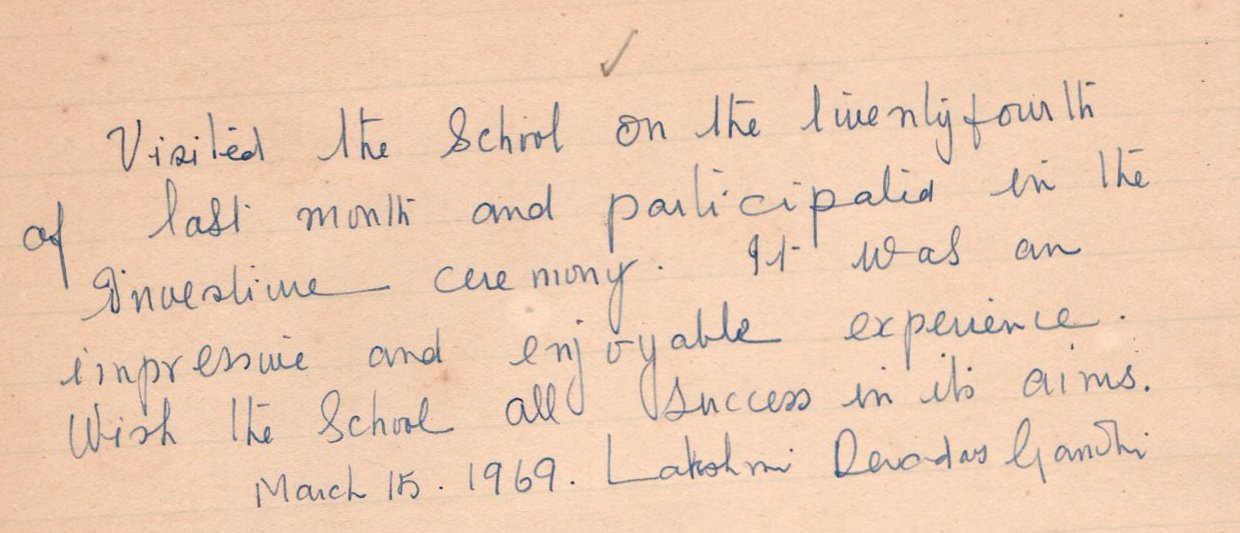 Visited the School on the twentyfourth
of last month and participated in the
Investiture ceremony. It was an
impressive and enjoyable experience.
Wish the School all success in its aims.
March 15. 1969. Lakshmi Devadas Gandhi